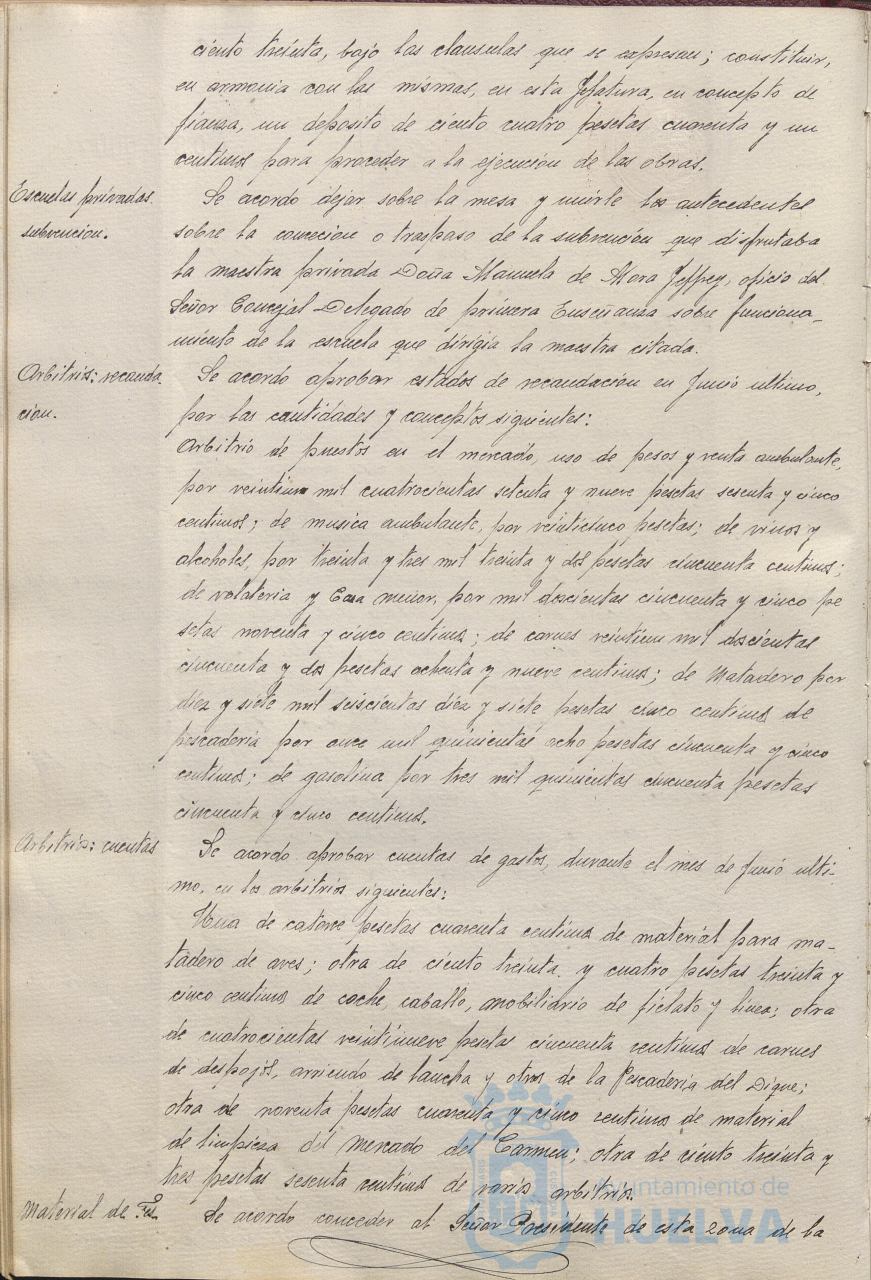 ciento treinta, bajo las clausulas que se expresan; constituir,
en armonia con las mismas, en esta Jefatura, en concepto de
fianza, un deposito de ciento cuatro pesetas cuarenta y un
centimos para proceder a la ejecucion de las obras.
Escuelas privadas
subvencion.
Se acordo dejar sobre la mesa y unirle los antecedentes
sobre la concecion o traspaso de la subvención que disfrutaba
la maestra privada Doña Manuela de Mora Jeffrey, oficio del
Señor Concejal-Delegado de primera Enseñanza sobre funciona-
miento de la escuela que dirigia la maestra citada.
Arbitrios: recauda-
cion.
Se acordo aprobar estados de recaudación en Junio ultimo,
por las cantidades y conceptos siguientes:
Arbitrio de puestos en el mercado, uso de pesos y venta ambulante,
por veintium mil cuatrocientas setenta y nueve pesetas sesenta y cinco
centimos; de musica ambulante, por veinticinco pesetas; de vinos y
alcoholes, por treinta y tres mil treinta y dos pesetas cincuenta centimos;
de volateria y Caza menor, por mil doscientas cincuenta y cinco pe
setas noventa y cinco centimos; de carnes veintium mil doscientas
cincuenta y dos pesetas ochenta y nueve centimos; de Matadero por
diez y siete mil seiscientas diez y siete pesetas cinco centimos de
pescaderia por once mil quinientas ocho pesetas cincuenta y cinco
centimos; de gasolina por tres mil quinientas cincuenta pesetas
cincuenta y cinco centimos.
Arbitrios: cuentas
Se acordo aprobar cuentas de gastos, durante el mes de Junio ulti-
mo, en los arbitrios siguientes:
Una de catorce pesetas cuarenta centimos de material para ma-
tadero de aves; otra de ciento treinta y cuatro pesetas treinta y
cinco centimos de coche, caballo, mobiliario de fielato y linea; otra
de cuatrocientas veintinueve pesetas cincuenta centimos de carnes
de despojos, arriendo de lancha y otros de la Pescaderia del Dique;
otra de noventa pesetas cuarenta y cinco centimos de material
de limpieza del Mercado del Carmen; otra de ciento treinta y
tres pesetas sesenta centimos de varios arbitrios.
Material de
Se acordo conceder al Señor Presidente de esta zona de la
Ayuntamiento de
HUELVA